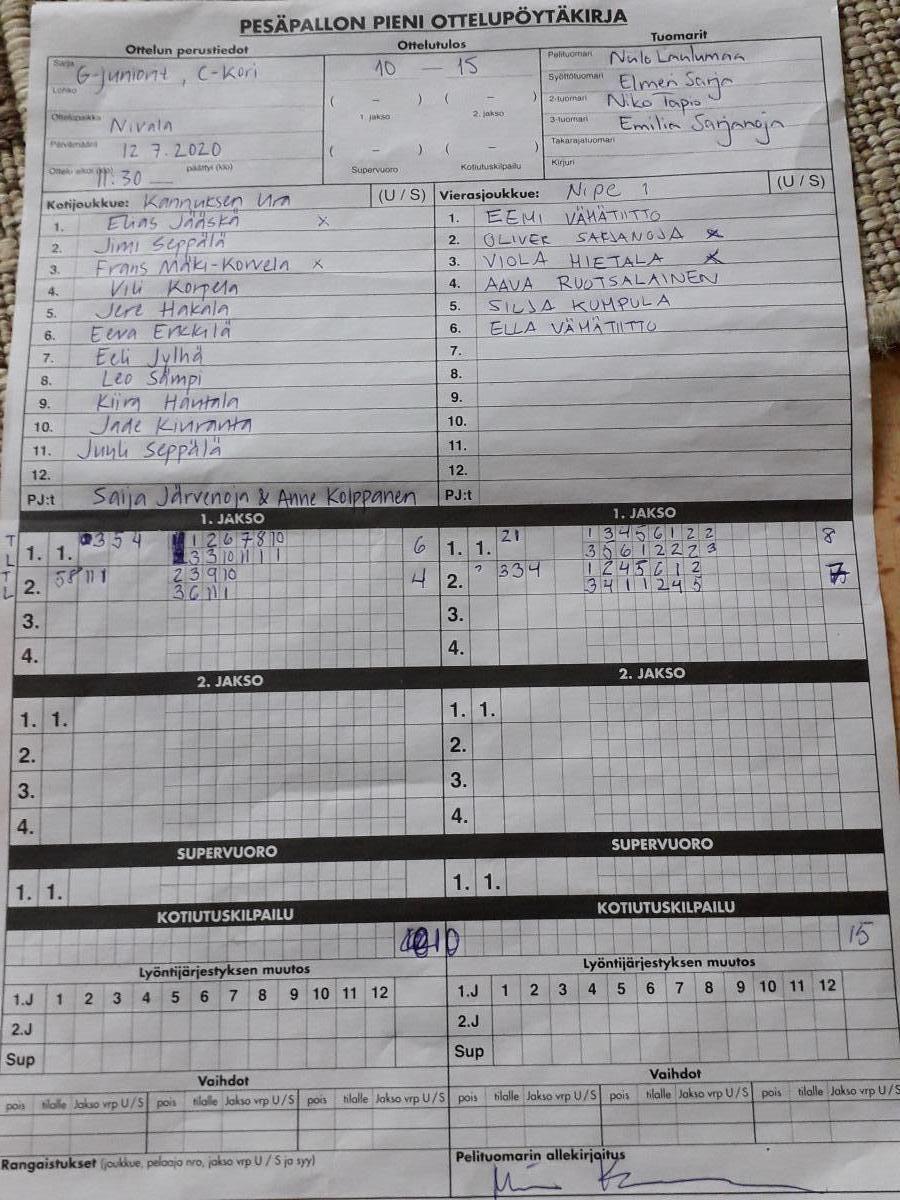 PESÄPALLON PIENI OTTELUPÖYTÄKIRJA
Ottelun perustiedot
Sarja G-juniorit, C-Kori
Lohko
Ottelupaikka Nivala
Päivämäärä 12.7.2020
Ottelu alkoi (klo) 11:30 päättyi (klo)
Ottelutulos
10 – 15
( – ) ( – )
1. jakso 2. jakso
( – ) ( – )
Supervuoro Kotiutuskilpailu
Tuomarit
Pelituomari
Syöttötuomari Elmeri Sarja
2-tuomari Niko Tapio
3-tuomari Emilia Sarjanoja
Takarajatuomari
Kirjuri
Kotijoukkue: Kannuksen Ura (U / S)
1. Elias Jääskä x
2. Jimi Seppälä
3. Frans Mäki-Korvela x
4. Vili Korpela
5. Jere Hakala
6. Eeva Erkkilä
7. Eeli Jylhä
8. Leo Sämpi
9. Kiira Hantala
10. Jade Kinranta
11. Juuli Seppälä
12.
PJ:t Saija Järvenoja & Anne Kolppanen
Vierasjoukkue: Nipe 1 (U / S)
1. EEMI VÄHÄTIITTO
2. OLIVER SARJANOJA x
3. VIOLA HIETALA x
4. AAVA RUOTSALAINEN
5. SILJA KUMPULA
6. ELLA VÄHÄTIITTO
7.
8.
9.
10.
11.
12.
PJ:t
1. JAKSO
T 1. 1. 3 5 4 1 2 6 7 8 10 6
L 3 3 10 11 1 1
T 2. 5 8 11 1 2 3 9 10 4
L 3 6 11 1
3.
4.
1. JAKSO
1. 1. 2 1 1 3 4 5 6 1 2 2 8
3 5 6 1 2 2 2 3
2. ? 3 3 4 1 2 4 5 6 1 2 7
3 4 1 1 2 4 5
3.
4.
2. JAKSO
1. 1.
2.
3.
4.
2. JAKSO
1. 1.
2.
3.
4.
SUPERVUORO
1. 1.
SUPERVUORO
1. 1.
KOTIUTUSKILPAILU
10
KOTIUTUSKILPAILU
15
Lyöntijärjestyksen muutos
1.J 1 2 3 4 5 6 7 8 9 10 11 12
2.J
Sup
Lyöntijärjestyksen muutos
1.J 1 2 3 4 5 6 7 8 9 10 11 12
2.J
Sup
Vaihdot
pois tilalle Jakso vrp U / S pois tilalle Jakso vrp U / S pois tilalle Jakso vrp U / S
Vaihdot
pois tilalle Jakso vrp U / S pois tilalle Jakso vrp U / S pois tilalle Jakso vrp U / S
Rangaistukset (joukkue, pelaaja nro, jakso vrp U / S ja syy)
Pelituomarin allekirjoitus